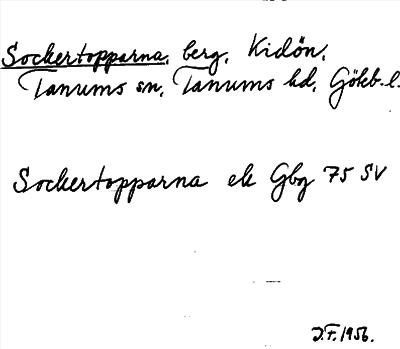 Sockertopparna, berg, Kidön,
Tanums sn, Tanums hd, Göteb.l.
Sockertopparna ek Gbg 75 SV
J.F. 1956.